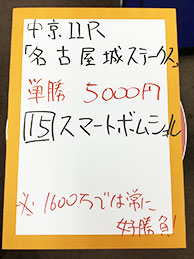 中京11R
「名古屋城ステークス」
単勝 5000円
15 スマートボムシェル
※1600万では常に
好勝負!